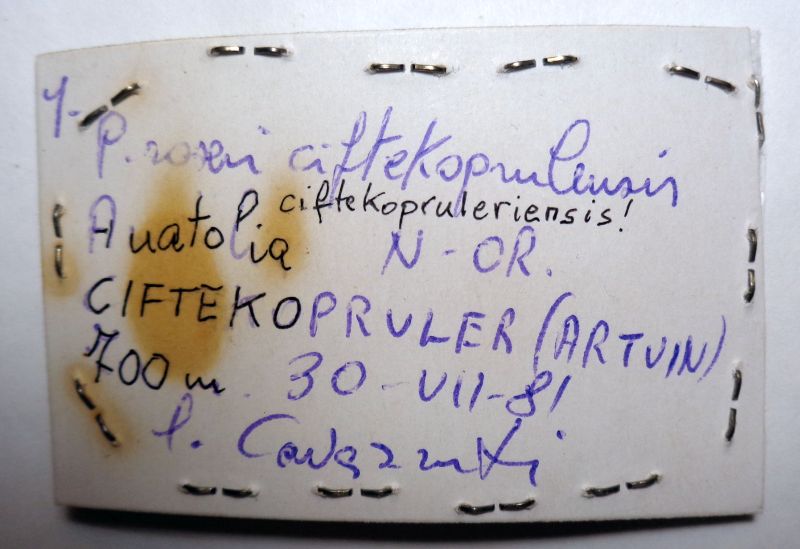 4.
P. roseri ciftekoprulensis
ciftekopruleriensis!
Anatolia N-OR.
CIFTEKOPRULER (ARTVIN)
700 m. 30-VII-81
l. Cavazzuti